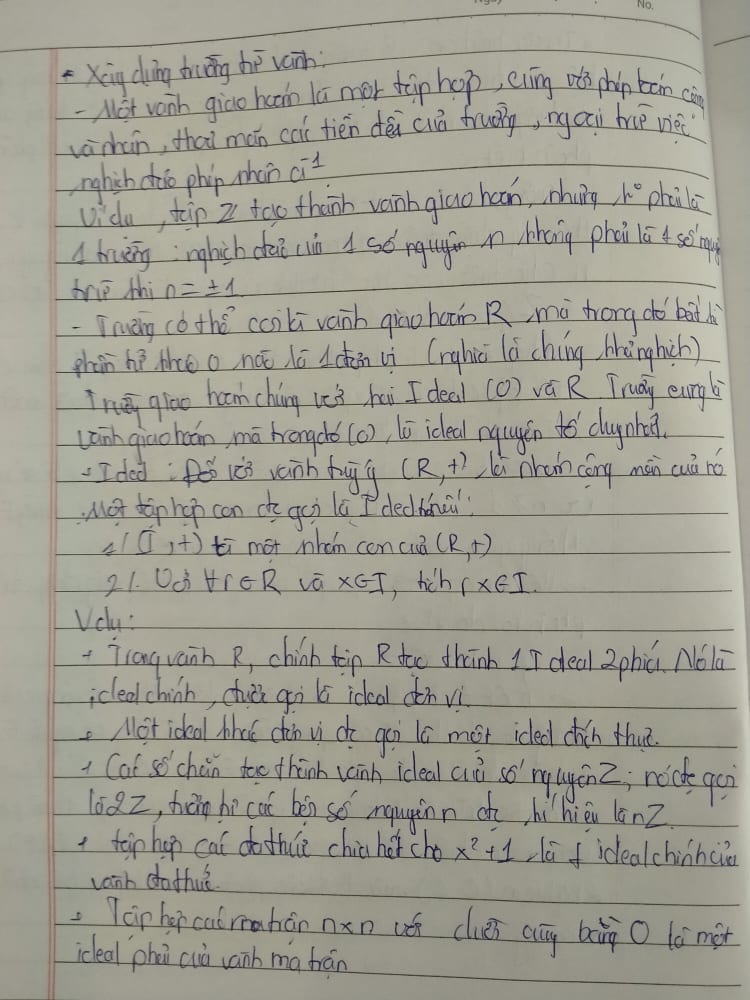 No.
* Xây dựng trường từ vành:
- Một vành giao hoán là một tập hợp, cùng với phép toán cộng
và nhân, thoả mãn các tiên đề của trường, ngoại trừ việc
nghịch đảo phép nhân a⁻¹
Ví dụ, tập Z tạo thành vành giao hoán, nhưng k° phải là
1 trường: nghịch đảo của 1 số nguyên n không phải là 1 số nguyên
trừ khi n = ±1
- Trường có thể coi là vành giao hoán R mà trong đó bất kì
phần tử khác 0 nào là 1 đơn vị (nghĩa là chúng khả nghịch)
Trường giao hoán chúng với hai Ideal (0) và R Trường cũng là
vành giao hoán, mà trong đó (0), là ideal nguyên tố duy nhất.
- Ideal: Đối với vành tuỳ ý (R,+), là nhóm cộng mền của nó
. Một tập hợp con đc gọi là Ideal nếu:
1/ (I,+) là một nhóm con của (R,+)
2/. Với ∀r∈R và x∈I, tích rx∈I.
Vdụ:
+ Trong vành R, chính tập R tạo thành 1 Ideal 2 phía. Nó là
ideal chính, được gọi là ideal đơn vị.
+ Một ideal khác đơn vị đc gọi là một ideal đích thực.
+ Các số chẵn tạo thành vành ideal của số nguyên Z; nó đc gọi
là 2Z, tương tự các bội số nguyên n đc kí hiệu là nZ.
+ tập hợp các đa thức chia hết cho x²+1 là 1 ideal chính của
vành đa thức.
+ Tập hợp các ma trận n×n với cuối cùng bằng 0 là một
ideal phải của vành ma trận